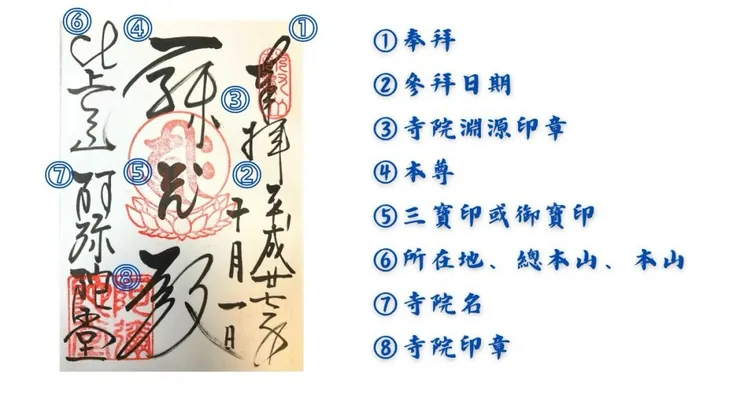 ①
奉拝
②
平成廿七年
十月一日
③
④
⑤
⑥
⑦
阿弥陀堂
⑧
①奉拜
②參拜日期
③寺院淵源印章
④本尊
⑤三寶印或御寶印
⑥所在地、總本山、本山
⑦寺院名
⑧寺院印章